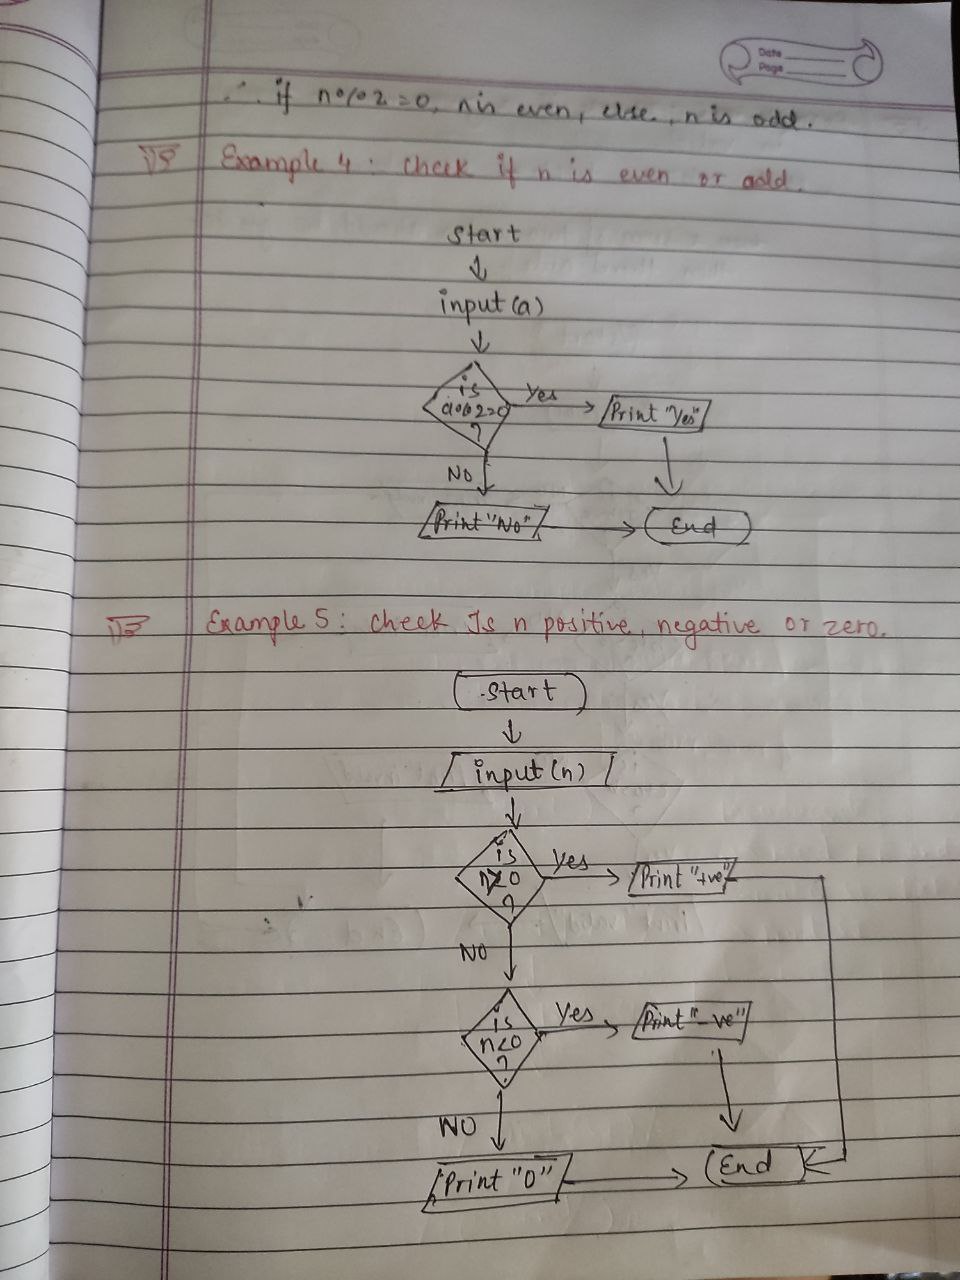 Date
Page
∴ if n%2=0, n is even, else, n is odd.
Example 4: check if n is even or odd.
start
input(a)
is
a%2=0
?
Yes
Print "Yes"
NO
Print "No"
End
Example 5: check Is n positive, negative or zero.
start
input(n)
is
n>0
?
Yes
Print "+ve"
NO
is
n<0
?
Yes
Print "-ve"
NO
Print "0"
End